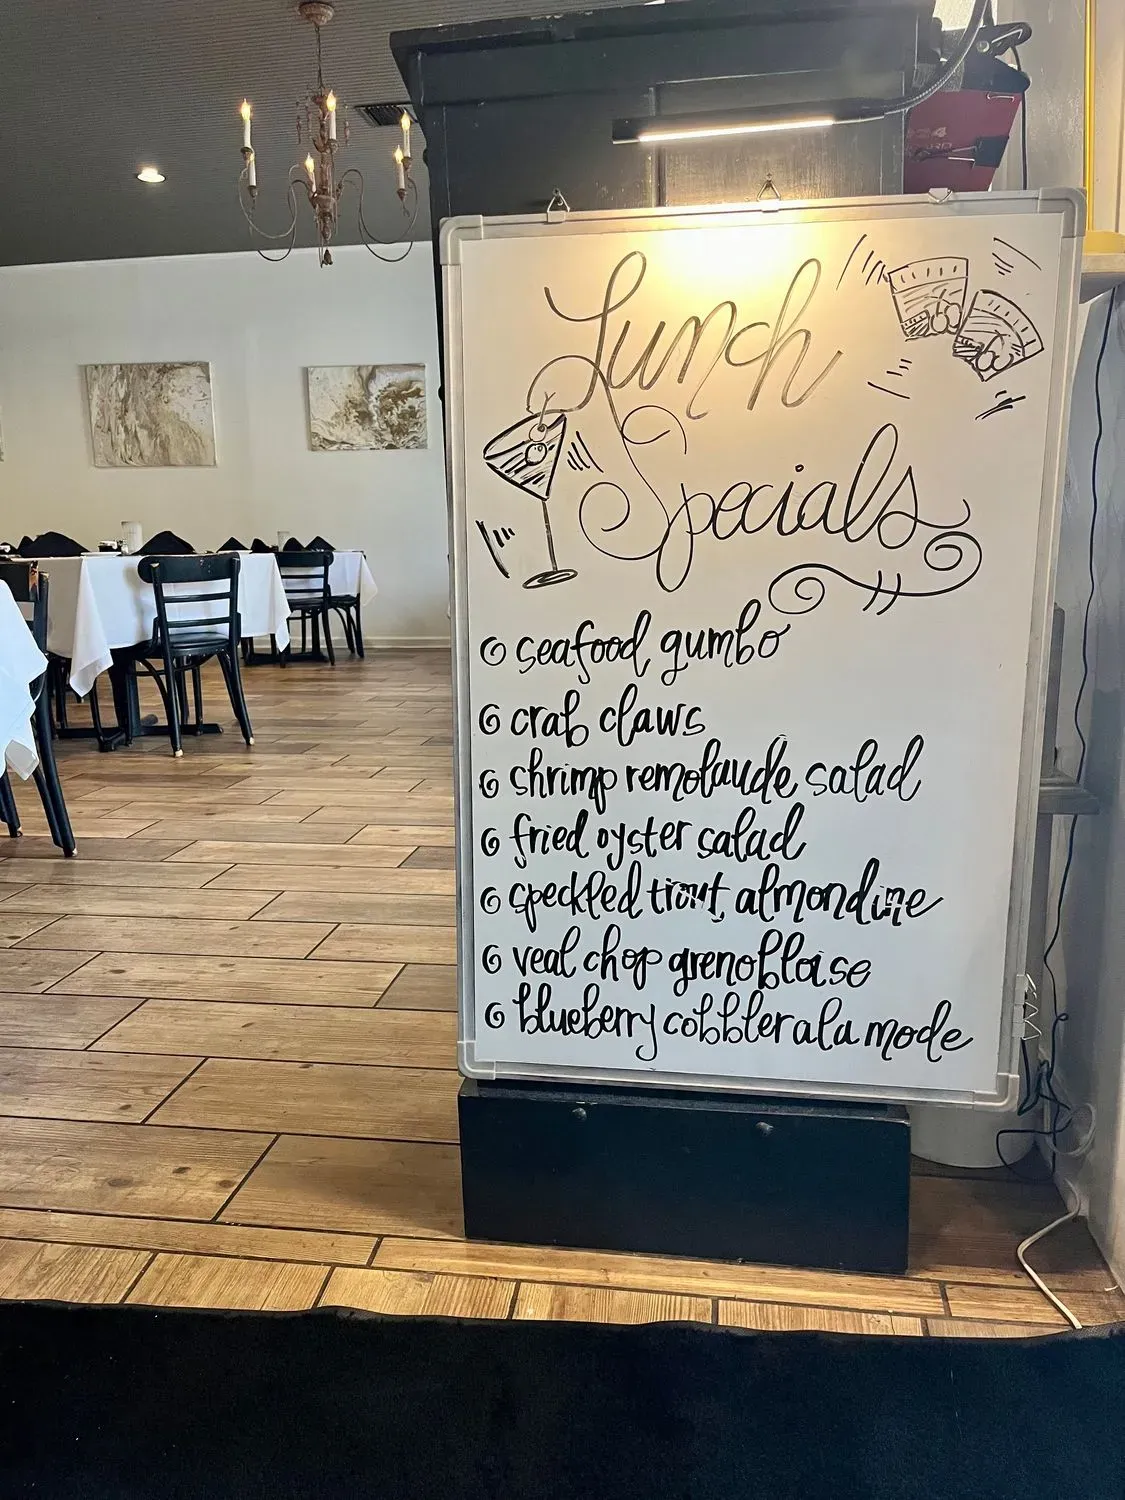 Lunch
Specials
seafood gumbo
crab claws
shrimp remolaude salad
fried oyster salad
speckled trout almondine
veal chop grenobloise
blueberry cobbler ala mode